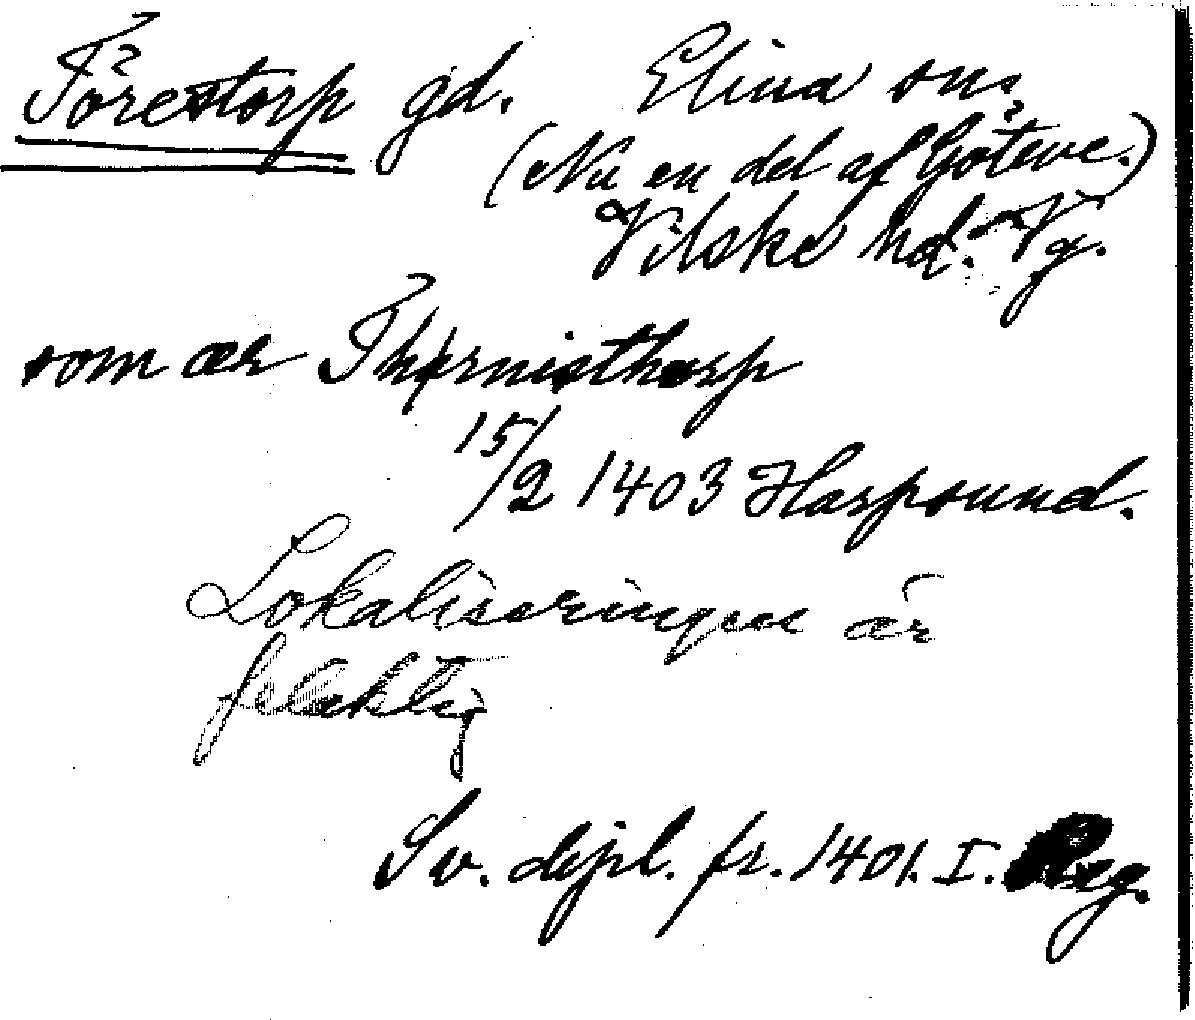 Törestorp gd. Elina sn,
(Nu en del af Göteve.)
Vilske hd. Vg.
som är Thørnisthorp
15/2 1403 Haspsund.
Lokaliseringen är
felaktig
Sv. dipl. fr. 1401. I. Reg.